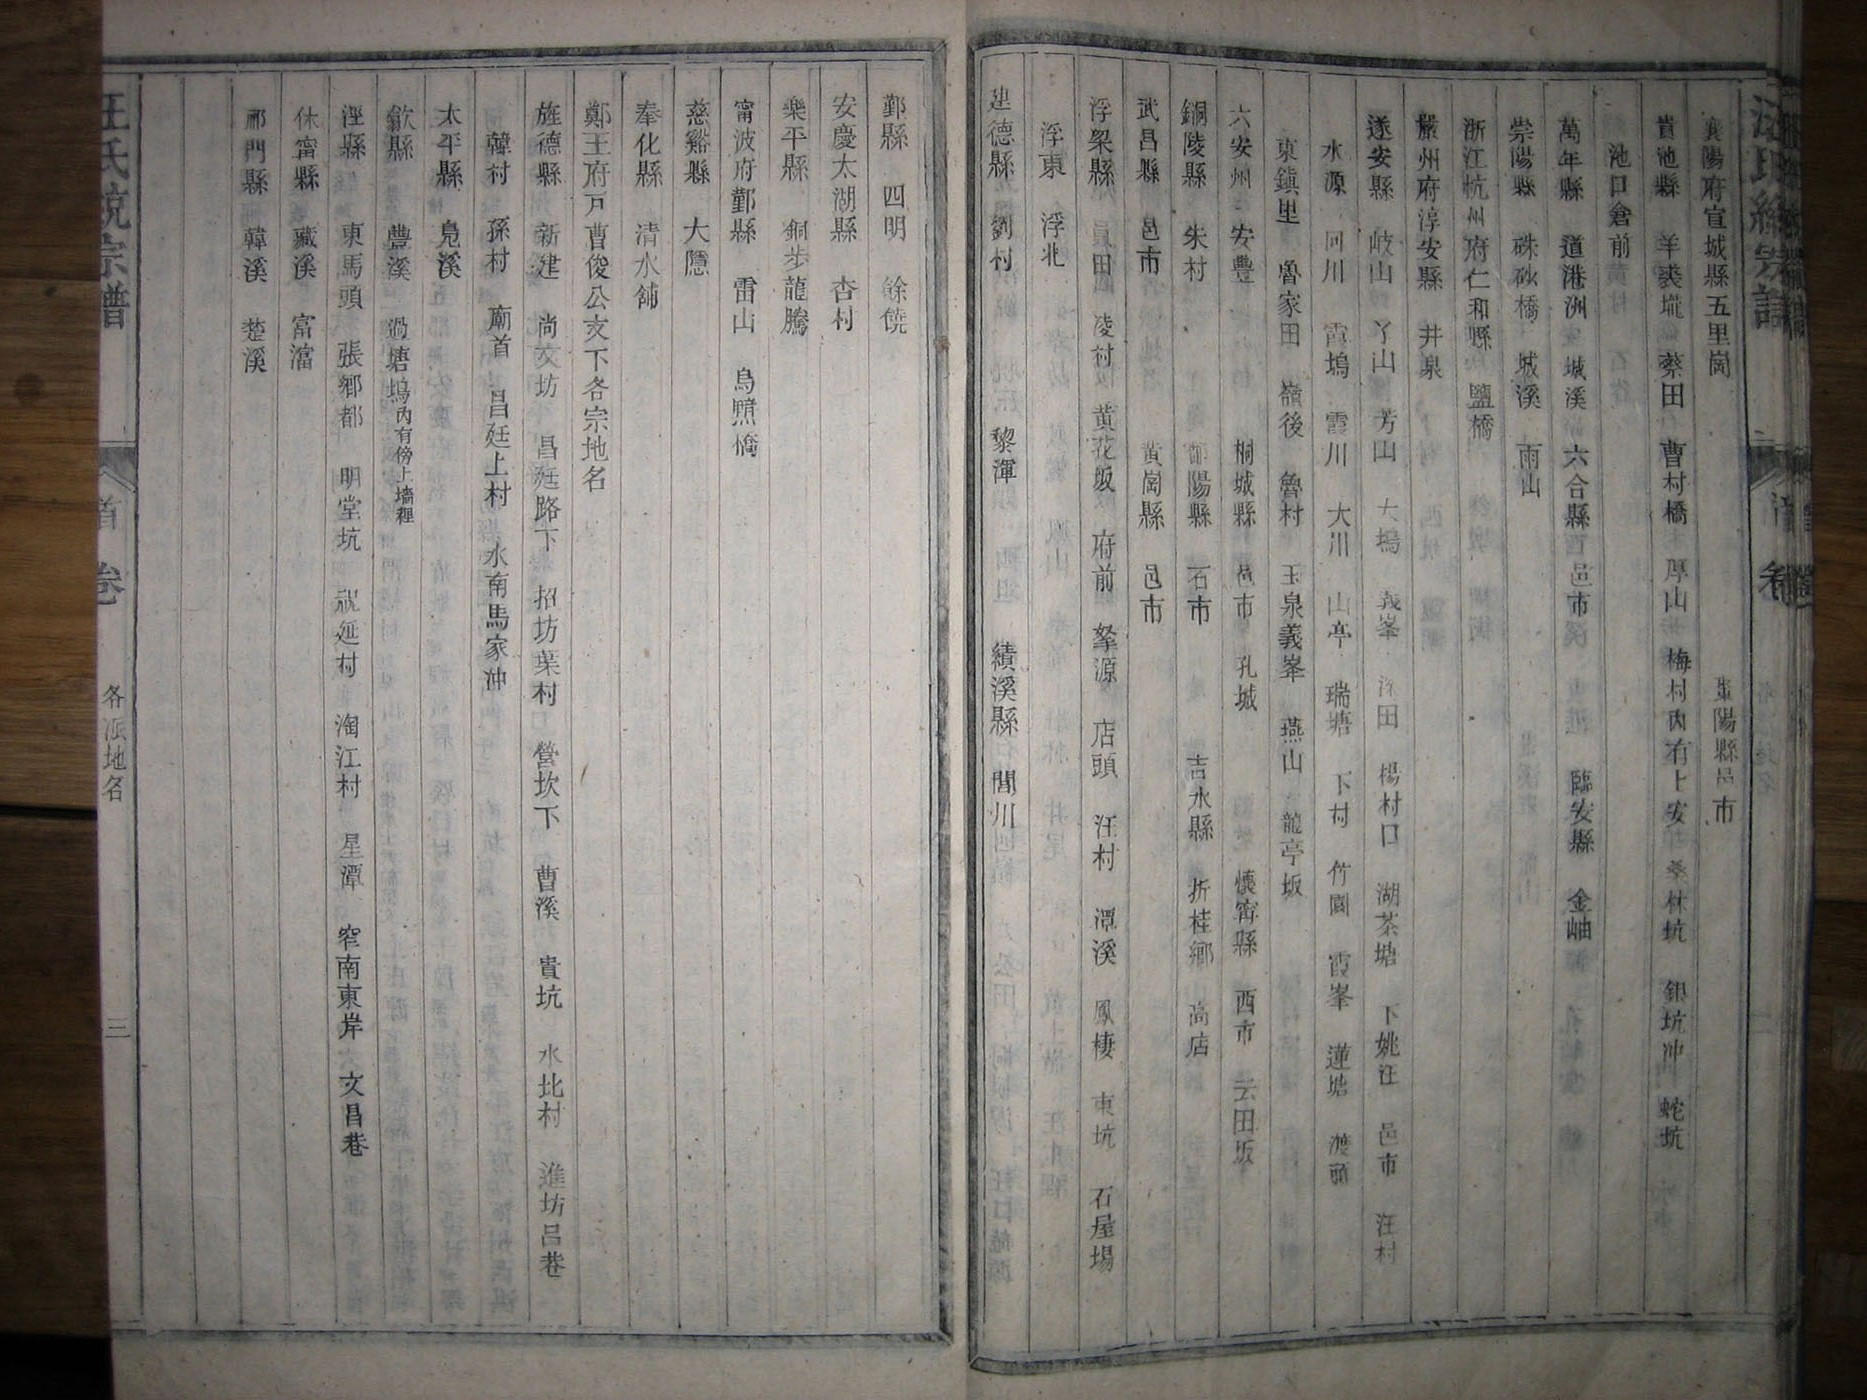 襄陽府宣城縣五里崗 棗陽縣邑市
貴池縣 羊裘 蔡田 曹村橋 厚山 梅村內有上安 桑林坑 銀坑冲 蛇坑
池口倉前
萬年縣 道港洲 城溪 六合縣 邑市 臨安縣 金岫
崇陽縣 硃砂橋 城溪 雨山
浙江杭州府仁和縣 鹽橋
嚴州府淳安縣 井泉
遂安縣 岐山 丫山 芳山 大塢 義峯 深田 楊村口 湖茶塘 下姚汪 邑市 汪村
水源 回川 霞塢 霅川 大川 山亭 瑞塘 下村 竹園 霞峯 蓮塘 渡頭
東鎮里 魯家田 嶺後 魯村 玉泉義峯 燕山 龍亭坂
六安州 安豐 桐城縣 邑市 孔城 懷甯縣 西市 云田坂
銅陵縣 朱村 鄱陽縣 石市 吉水縣 折桂鄉 高店
武昌縣 邑市 黄崗縣 邑市
浮梁縣 凌村 黄花坂 府前 店頭 汪村 潭溪 鳳棲 東坑 石屋場
浮東 浮北
建德縣 劉村 黎渾 績溪縣 閭川
鄞縣 四明 餘饒
安慶太湖縣 杏村
樂平縣 銅步龍騰
甯波府鄞縣 雷山 烏照橋
慈谿縣 大隱
奉化縣 清水舖
鄭王府戸曹俊公支下各宗地名
旌德縣 新建 尚文坊 昌廷路下 招坊葉村 營坎下 曹溪 貴坑 水北村 進坊呂巷
韓村 孫村 廟首 昌廷上村 水南馬家冲
太平縣 凫溪
歙縣 豐溪 過塘塢內有傍上墻裡
涇縣 東馬頭 張鄉都 明堂坑 祝延村 淘江村 星潭 窄南東岸 文昌巷
休甯縣 藏溪 富溜
祁門縣 韓溪 楚溪
汪氏統宗譜 首卷 各派地名 三